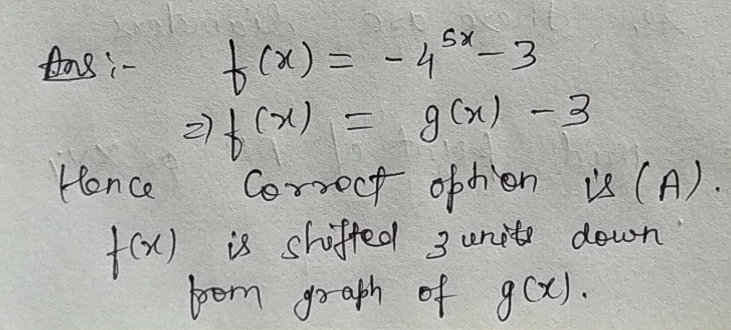 Ans :- f(x) = -4^5x - 3
⇒ f(x) = g(x) - 3
Hence Correct option is (A).
f(x) is shifted 3 units down
from graph of g(x).